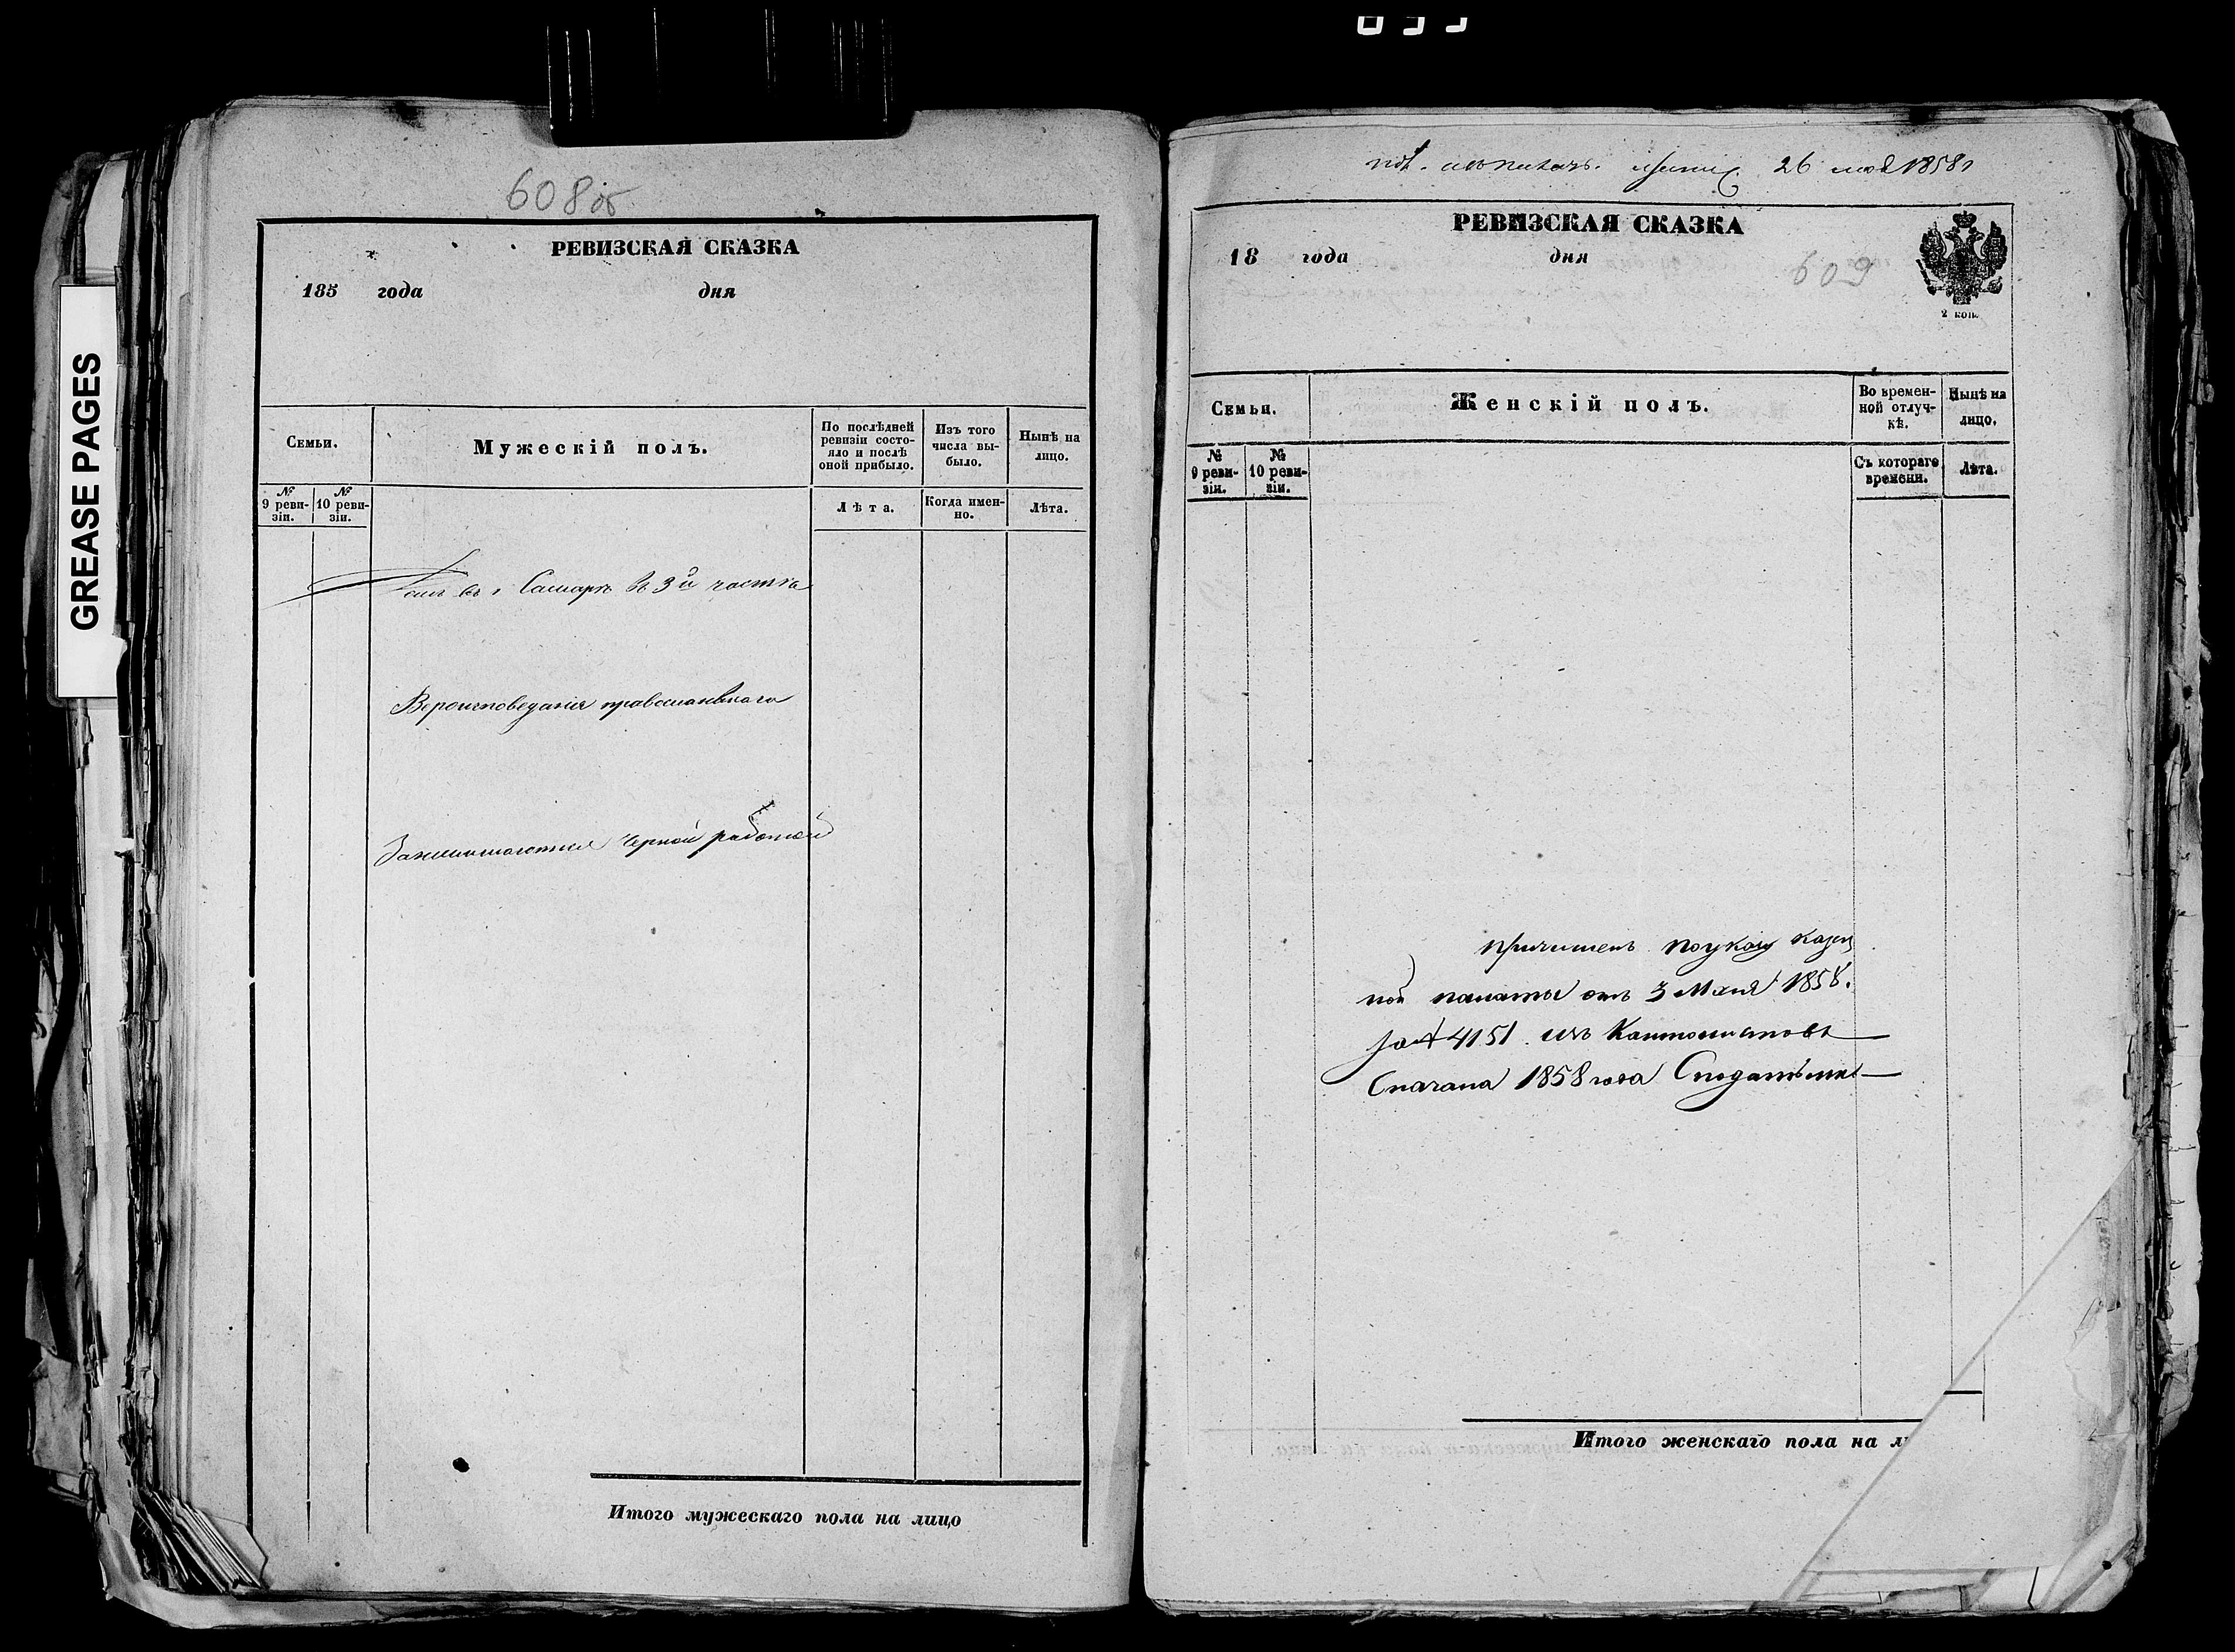 GREASE PAGES
608 об
РЕВИЗСКАЯ СКАЗКА
185 года дня
Семьи.
Мужескій полъ.
По послѣдней ревизіи состо-
яло и послѣ
оной прибыло.
Изъ того
числа вы-
было.
Нынѣ на
лицо.
№
9 реви-
зіи.
№
10 реви-
зіи.
Лѣта.
Когда имен-
но.
Лѣта.
въ г Самаре въ 3й части
Вероисповедания православнаго
Занимается черной работой
Итого мужескаго пола на лицо
26 мая 1858
РЕВИЗСКАЯ СКАЗКА
18 года дня
609
2 коп.
Семьи.
Женскій полъ.
Во времен-
ной отлуч-
кѣ.
Нынѣ на
лицо.
№
9 реви-
зіи.
№
10 реви-
зіи.
Съ котораго
времени.
Лѣта.
Причислен по указу казен
ной палаты от 3 Мая 1858.
за № 4151 изъ Кантонистовъ
Сначала 1858 года
Итого женскаго пола на л